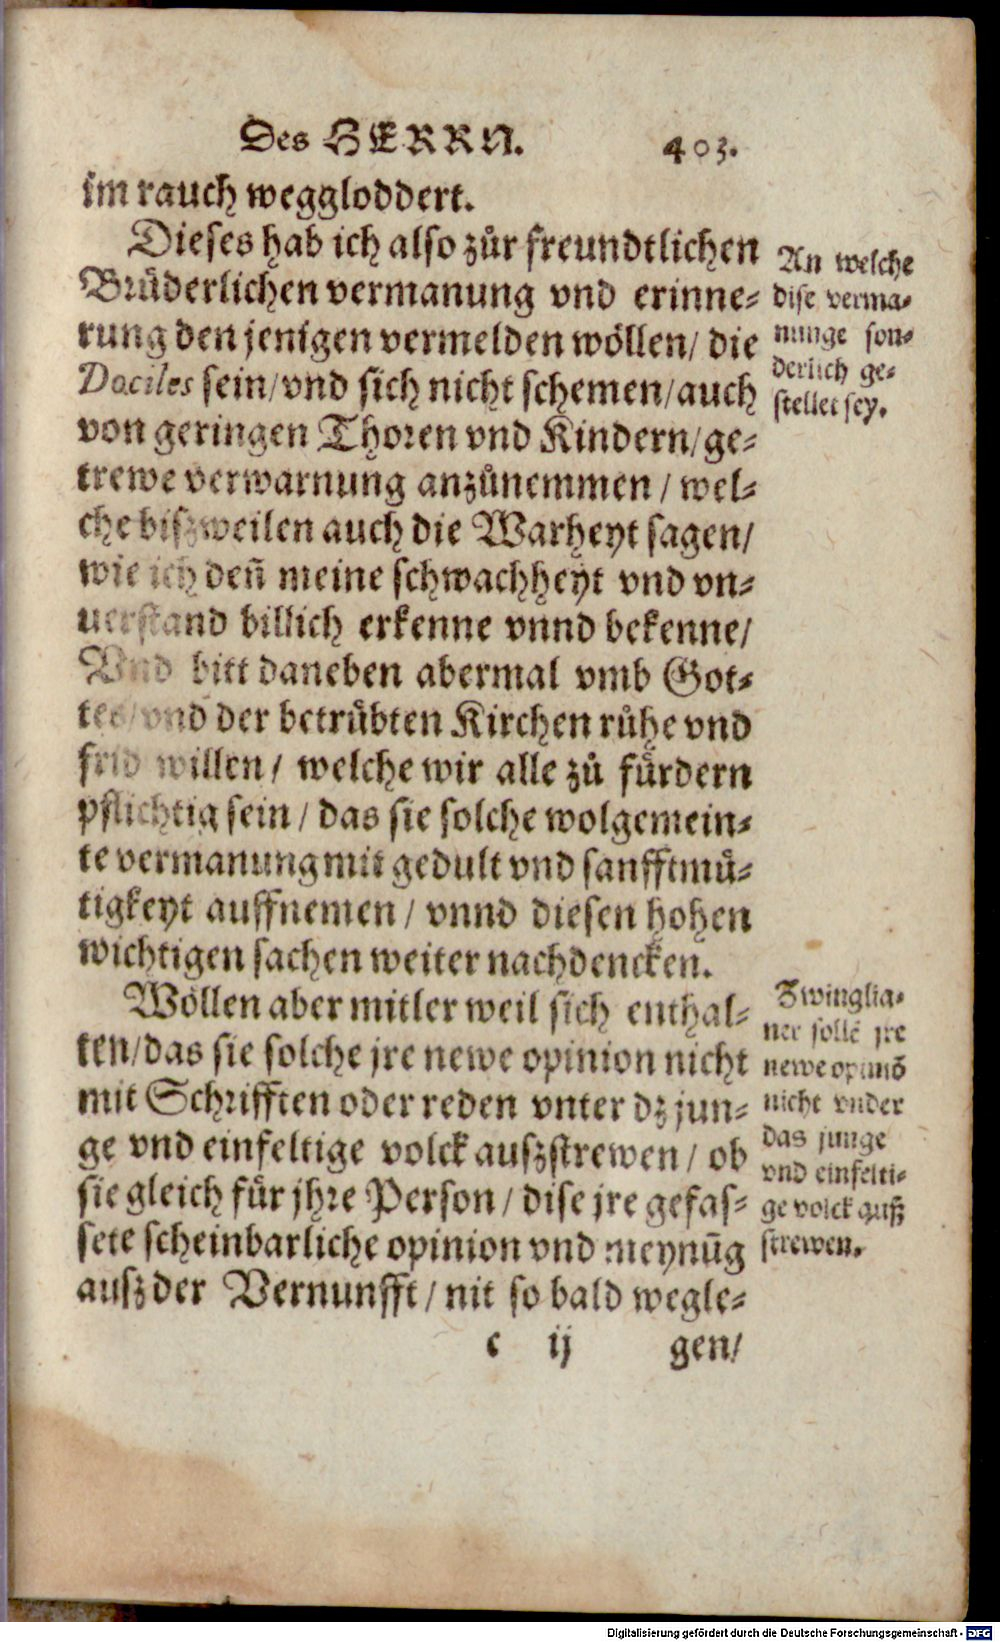 Des HERRN. 403.
im rauch weggloddert.
Dieses hab ich also zůr freundtlichen
Brüderlichen vermanung vnd erinne-
rung den jenigen vermelden wöllen/ die
Dociles sein/ vnd sich nicht schemen/ auch
von geringen Thoren vnd Kindern/ ge-
trewe verwarnung anzůnemmen / wel-
che biszweilen auch die Warheyt sagen/
wie ich deñ meine schwachheyt vnd vn-
uerstand billich erkenne vnnd bekenne/
Vnd bitt daneben abermal vmb Got-
tes/ vnd der betrübten Kirchen růhe vnd
frid willen/ welche wir alle zů fürdern
pflichtig sein / das sie solche wolgemein-
te vermanung mit gedult vnd sanfftmü-
tigkeyt auffnemen / vnnd diesen hohen
wichtigen sachen weiter nachdencken.
Wöllen aber mitler weil sich enthal-
ten/ das sie solche jre newe opinion nicht
mit Schrifften oder reden vnter dz jun-
ge vnd einfeltige volck auszstrewen / ob
sie gleich für jhre Person / dise jre gefas-
sete scheinbarliche opinion vnd meynũg
ausz der Vernunfft / nit so bald wegle-
c ij gen/
An welche
dise verma-
nunge son-
derlich ge-
stellet sey.
Zwinglia-
ner sollē jre
newe opiniō
nicht vnder
das junge
vnd einfelti-
ge volck auß
strewen.
Digitalisierung gefördert durch die Deutsche Forschungsgemeinschaft - DFG